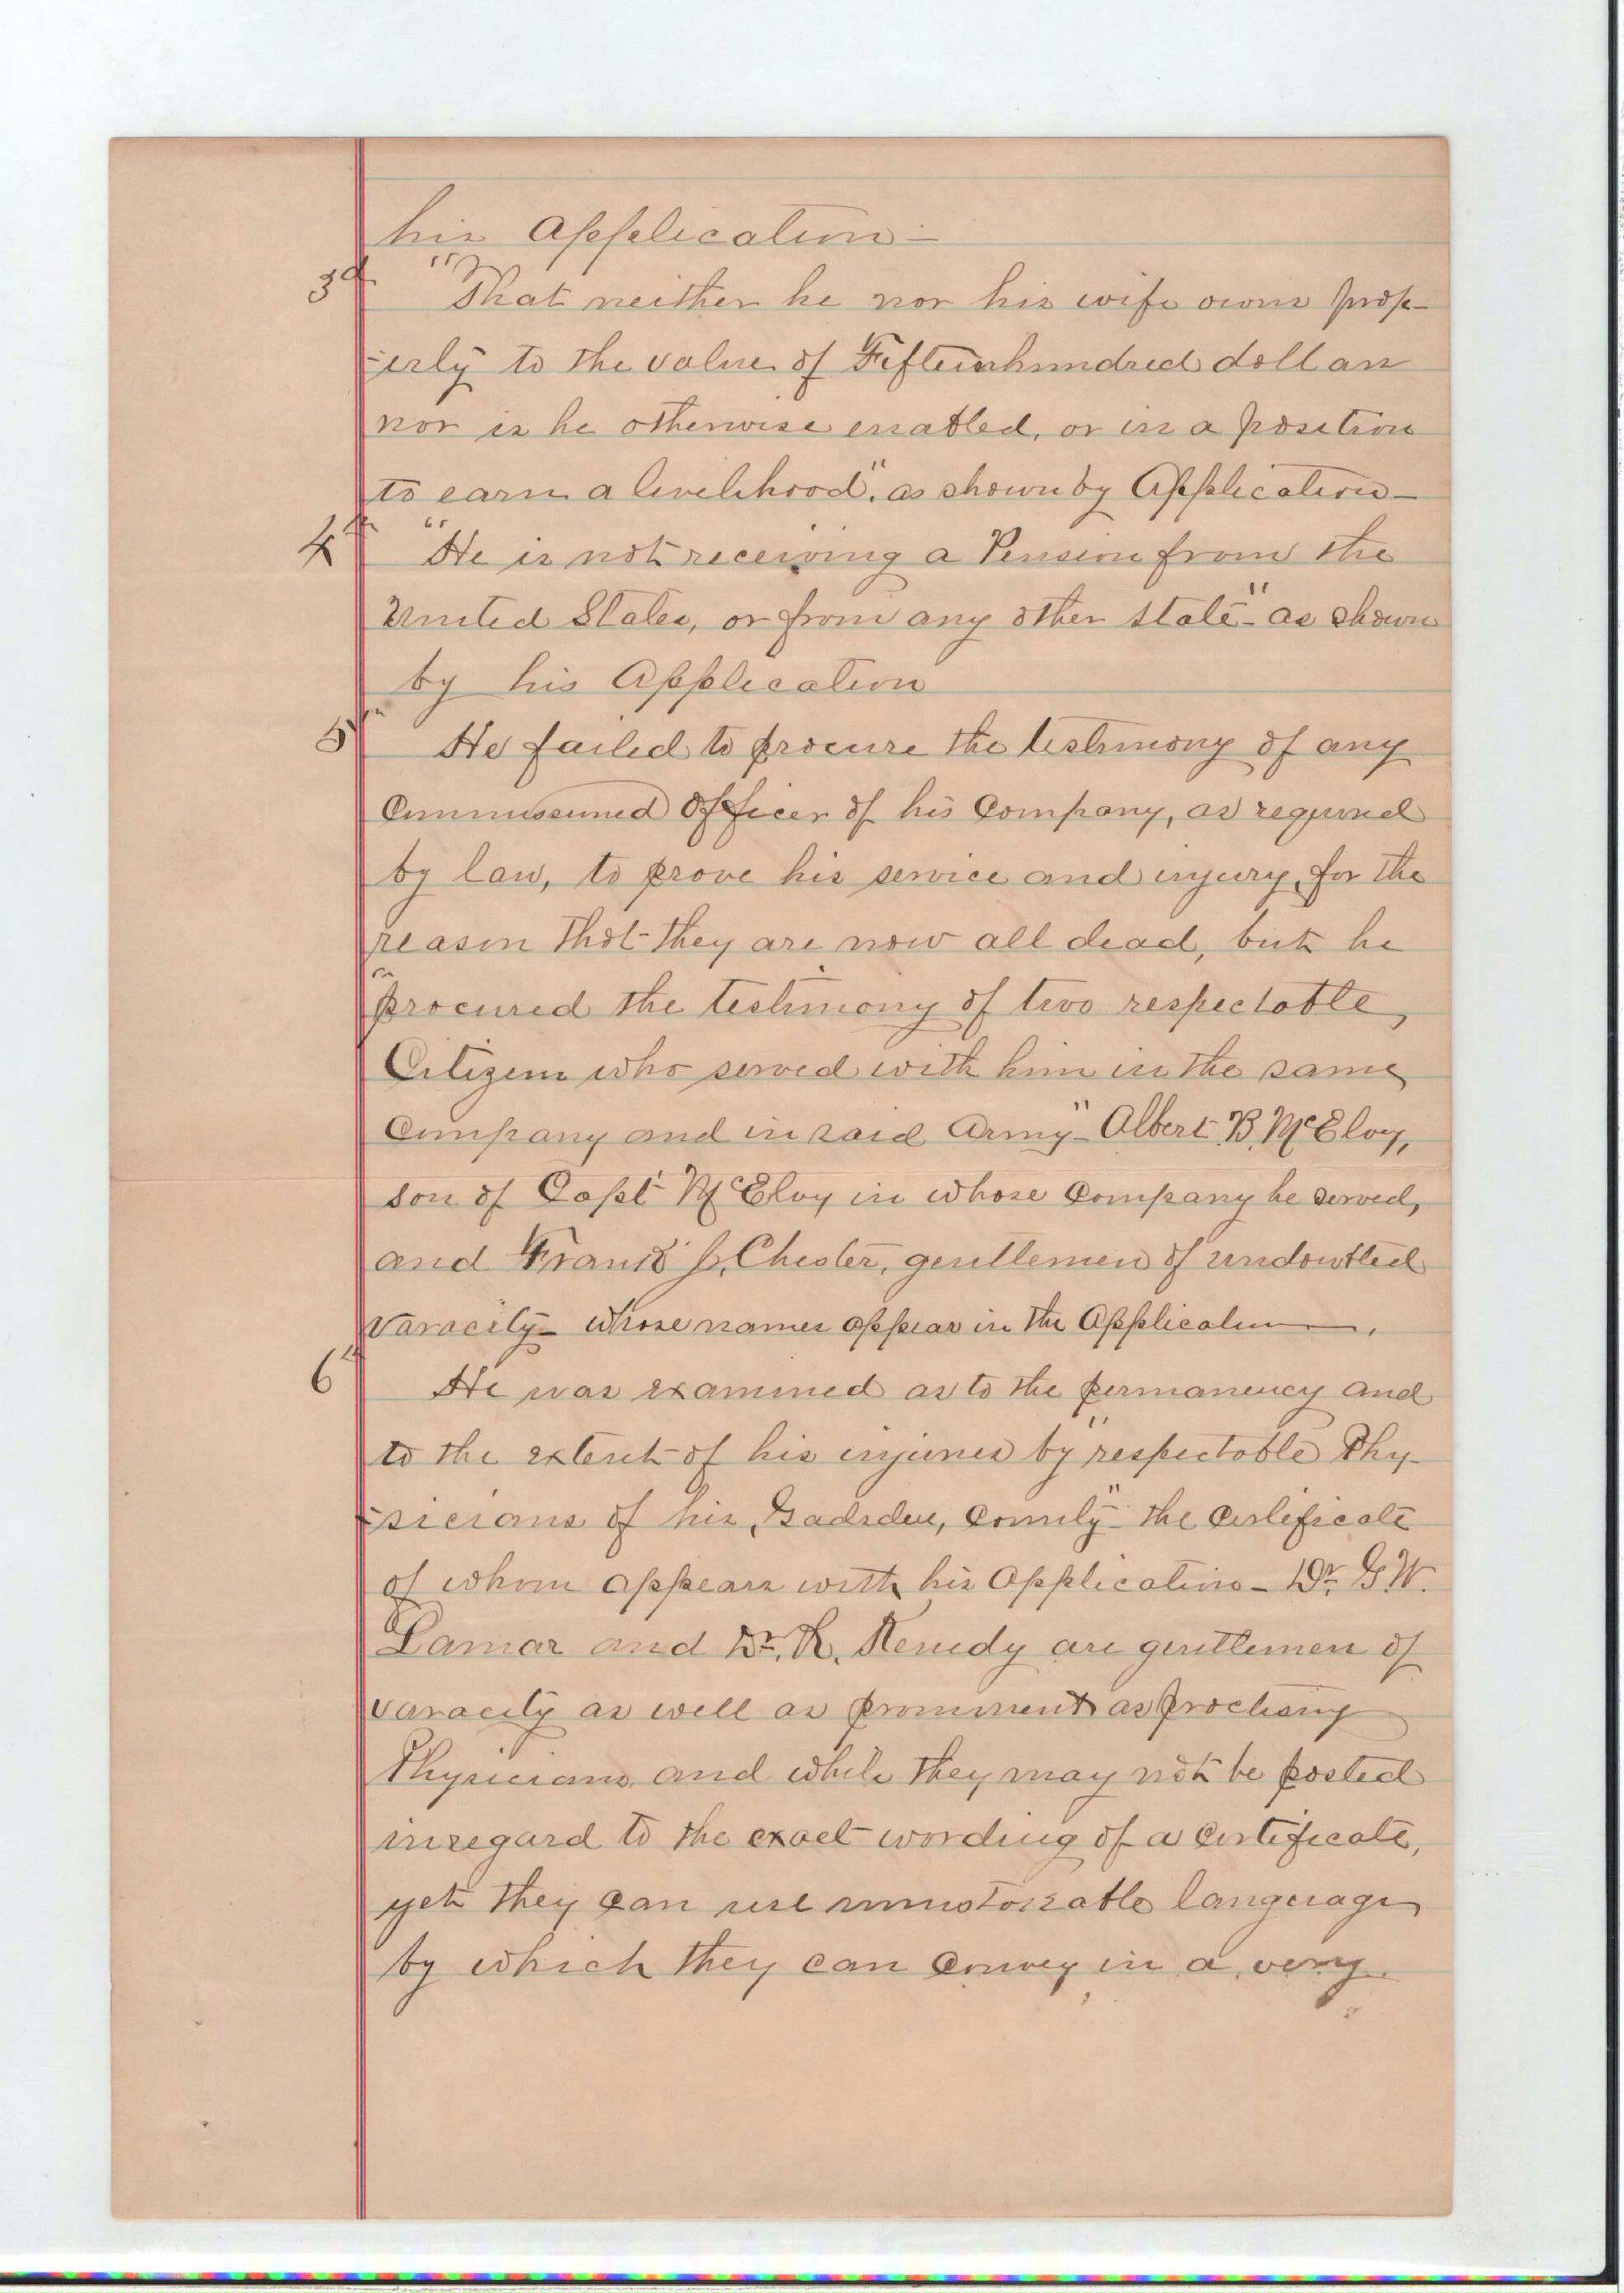 his Application—
3d "That neither he nor his wife owns prop-
-erty to the value of Fifteenhundred dollars
nor is he otherwise enabled, or in a position
to earn a livelihood". as shown by Application—
4th "He is not receiving a Pension from the
United States, or from any other state"- as shown
by his Application
5th He failed to procure the testimony of any
Commissioned Officer of his Company, as required
by law, to prove his service and injury, for the
reason that they are now all dead, but he
"procured the testimony of two respectable,
Citizens who served with him in the same
Company and in said Army"- Albert B, McEloy,
son of Capt McEloy in whose Company he served,
and Frank P. Chester, gentlemen of undoubted
varacity- whose names appear in the Application—.
6th He was examined as to the permanency and
to the extent of his injuries by "respectable Phy-
-sicians of his, Gadsden, County"- the certificate
of whom appears with his Application- Dr. G W.
Lamar and Dr. R. Kenedy are gentlemen of
varacity as well as prominent as practicing
Physicians, and while they may not be posted
in regard to the exact wording of a certificate,
yet they can use unmistakable language
by which they can convey in a very